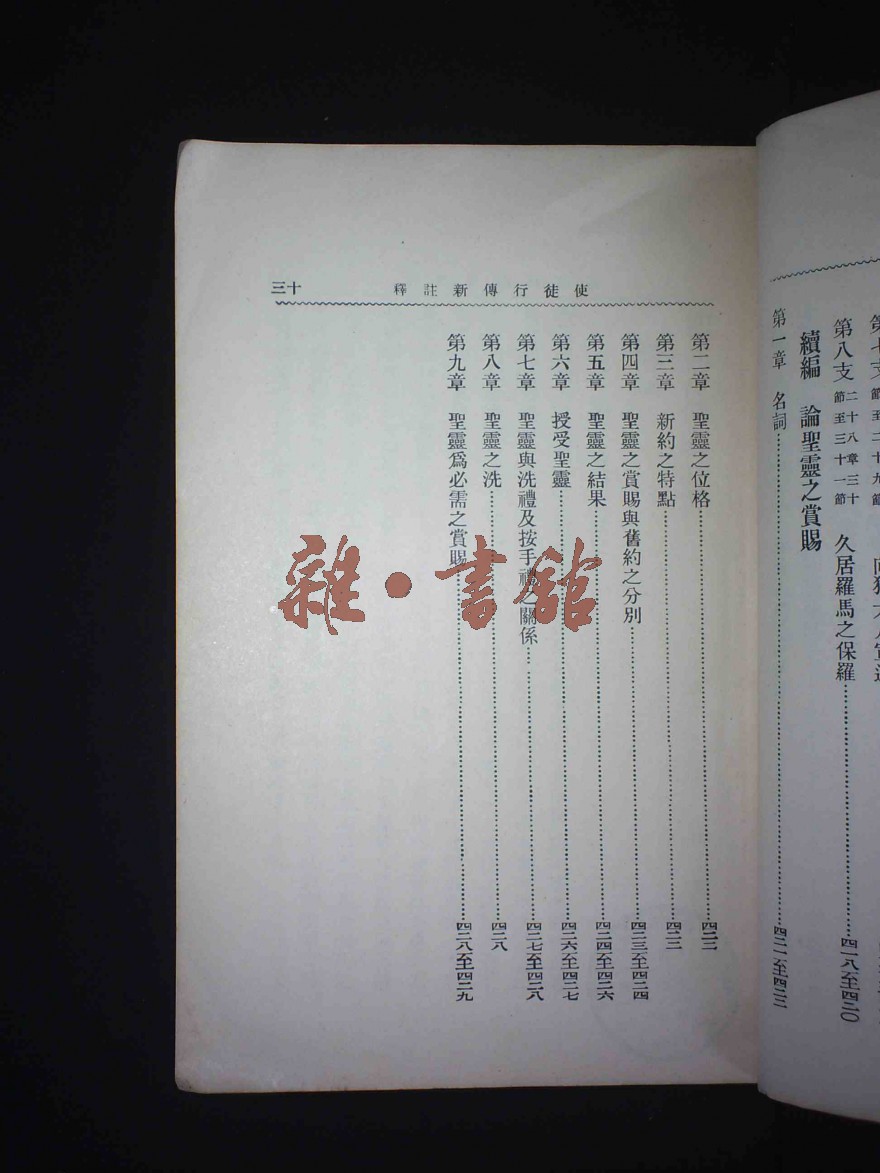 第八支 二十八章三十節至三十一節 久居羅馬之保羅……四一八至四二〇
續編 論聖靈之賞賜
第一章 名詞……四二一至四二三
使徒行傳新註釋 十三
第二章 聖靈之位格……四二三
第三章 新約之特點……四二三
第四章 聖靈之賞賜與舊約之分別……四二三至四二四
第五章 聖靈之結果……四二四至四二六
第六章 授受聖靈……四二六至四二七
第七章 聖靈與洗禮及按手禮之關係……四二七至四二八
第八章 聖靈之洗……四二八
第九章 聖靈爲必需之賞賜……四二八至四二九
雜·書館